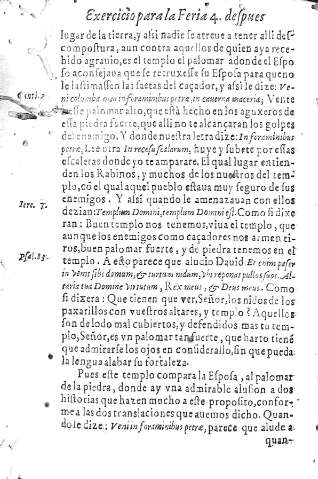 Exercicio para la Feria 4. despues
lugar de la tierra, y assi nadie se atreue a tener alli des-
compostura, aun contra aquellos de quien aya rece-
bido agrauio, es el templo el palomar adonde el Espo
so aconsejaua que se retruxesse su Esposa para que no
le lastimassen las saetas del caçador, y assi le dize: Ve
Canti. 2
ni columba mea in foraminibus petræ, in cauerna maceriæ; Vente
a esse palomar alto, que està hecho en los aguxeros de
essa piedra fuerte, que alli no te alcançaran los golpes
del enemigo. Y donde nuestra letra dize: In foraminibus
petræ, Lee otra In recessu scalarum, huye y subete por essas
escaleras donde yo te amparare. El qual lugar entien-
den los Rabinos, y muchos de los nuestros del tem-
plo, cō el qual aquel pueblo estaua muy seguro de sus
enemigos. Y assi quando le amenazauan con ellos
Iere. 7.
dezian: Templum Domini, templum Domini est. Como si dixe
ran: Buen templo nos tenemos, viua el templo, que
aunque los enemigos como caçadores nos armen ti-
ros, buen palomar fuerte, y de piedra tenemos en el
templo. A esto parece que aludio Dauid Et enim passer
Psal. 83.
inuenit sibi domum, & turtur nidum, vbi reponat pullos suos. Al-
taria tua Domine virtutum, Rex meus, & Deus meus. Como
si dixera: Que tienen que ver, Señor, los nidos de los
paxarillos con vuestros altares, y templo? Aquellos
son de lodo mal cubiertos, y defendidos mas tu tem-
plo, Señor, es vn palomar tan fuerte, que harto tiene
que admirarse los ojos en considerallo, sin que pueda
la lengua alabar su fortaleza.
Pues este templo compara la Esposa, al palomar
de la piedra, donde ay vna admirable alusion a dos
historias que hazen mucho a este proposito, confor-
me a las dos translaciones que auemos dicho. Quan-
do le dize: Veni in foraminibus petræ, parece que alude a
quan-